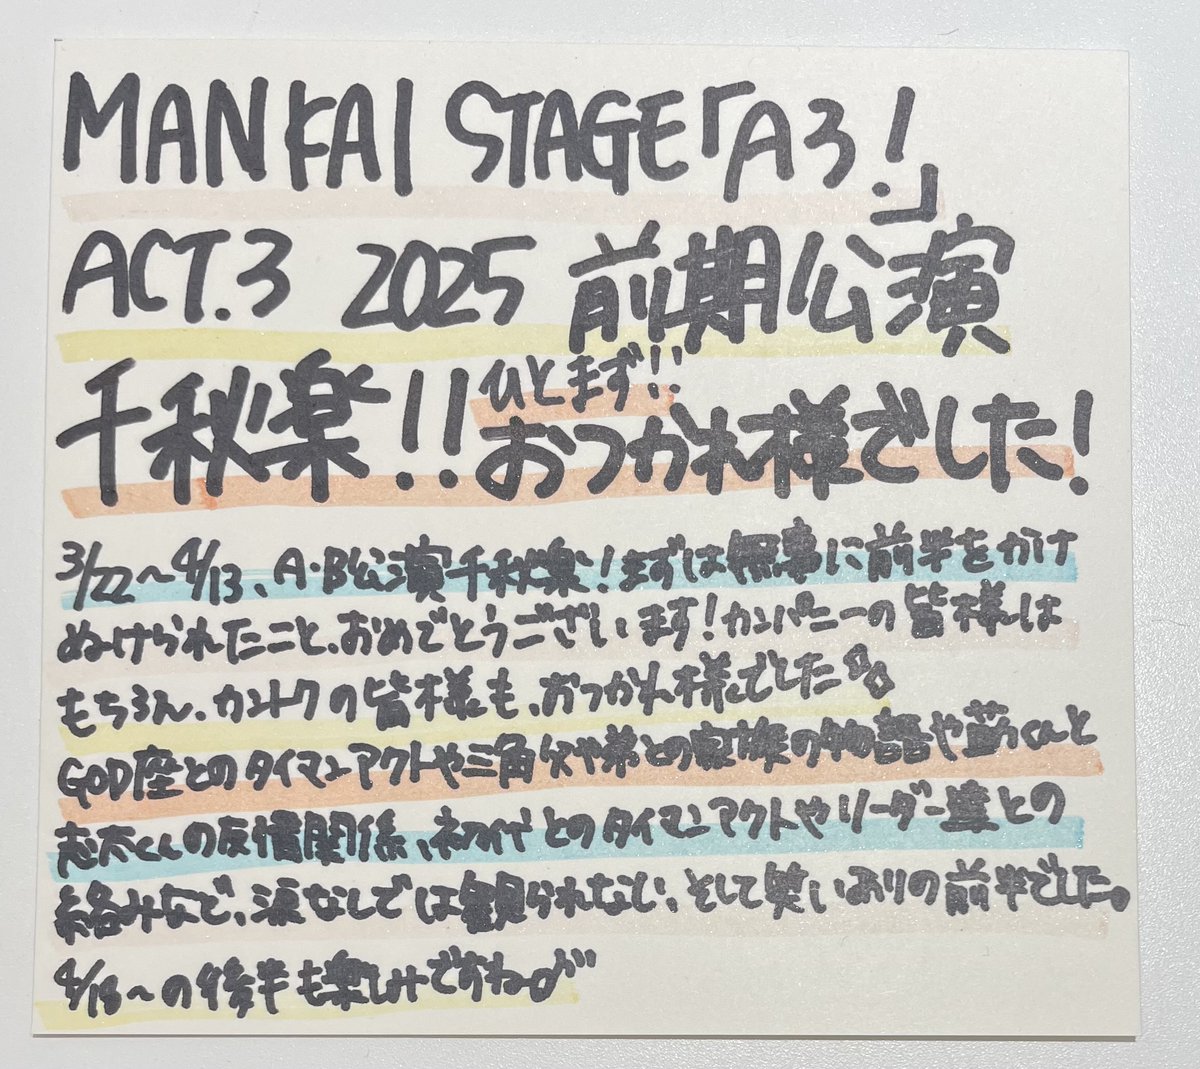 MANKAI STAGE「A3!」
ACT.3 2025 前期公演
千秋楽!! ひとまず!!
おつかれ様でした!
3/22〜4/13、A・B公演千秋楽!まずは無事に前半をかけ
ぬけられたこと、おめでとうございます!カンパニーの皆様は
もちろん、カントクの皆様も、おつかれ様でした
GOD座とのタイマンアクトや三角父や弟との家族の物語や莇くんと
志太くんの友情関係、初代とのタイマンアクトやリーダー達との
絡みなど、涙なしでは観られない、そして笑いありの前半でした。
4/18〜の後半も楽しみですね